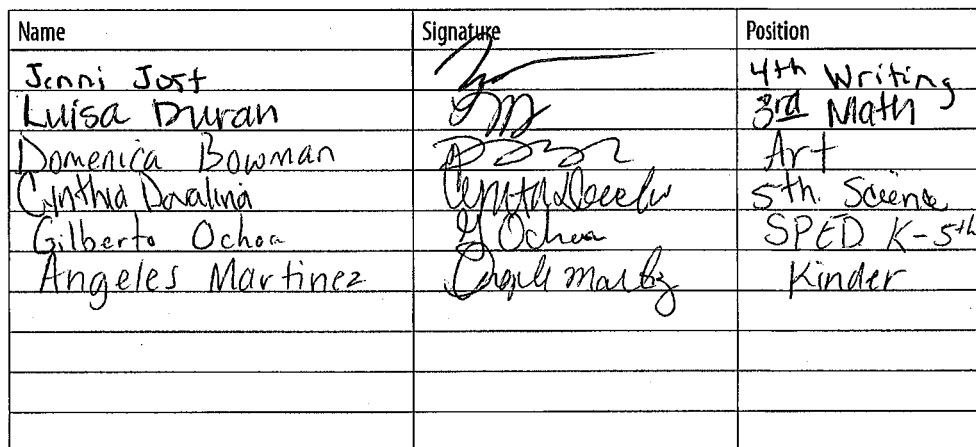 Name Signature Position
Jenni Jost 4th Writing
Luisa Duran 3rd Math
Domenica Bowman Art
Cynthia Davalina 5th. Science
Gilberto Ochoa G Ochoa SPED K-5th
Angeles Martinez Kinder